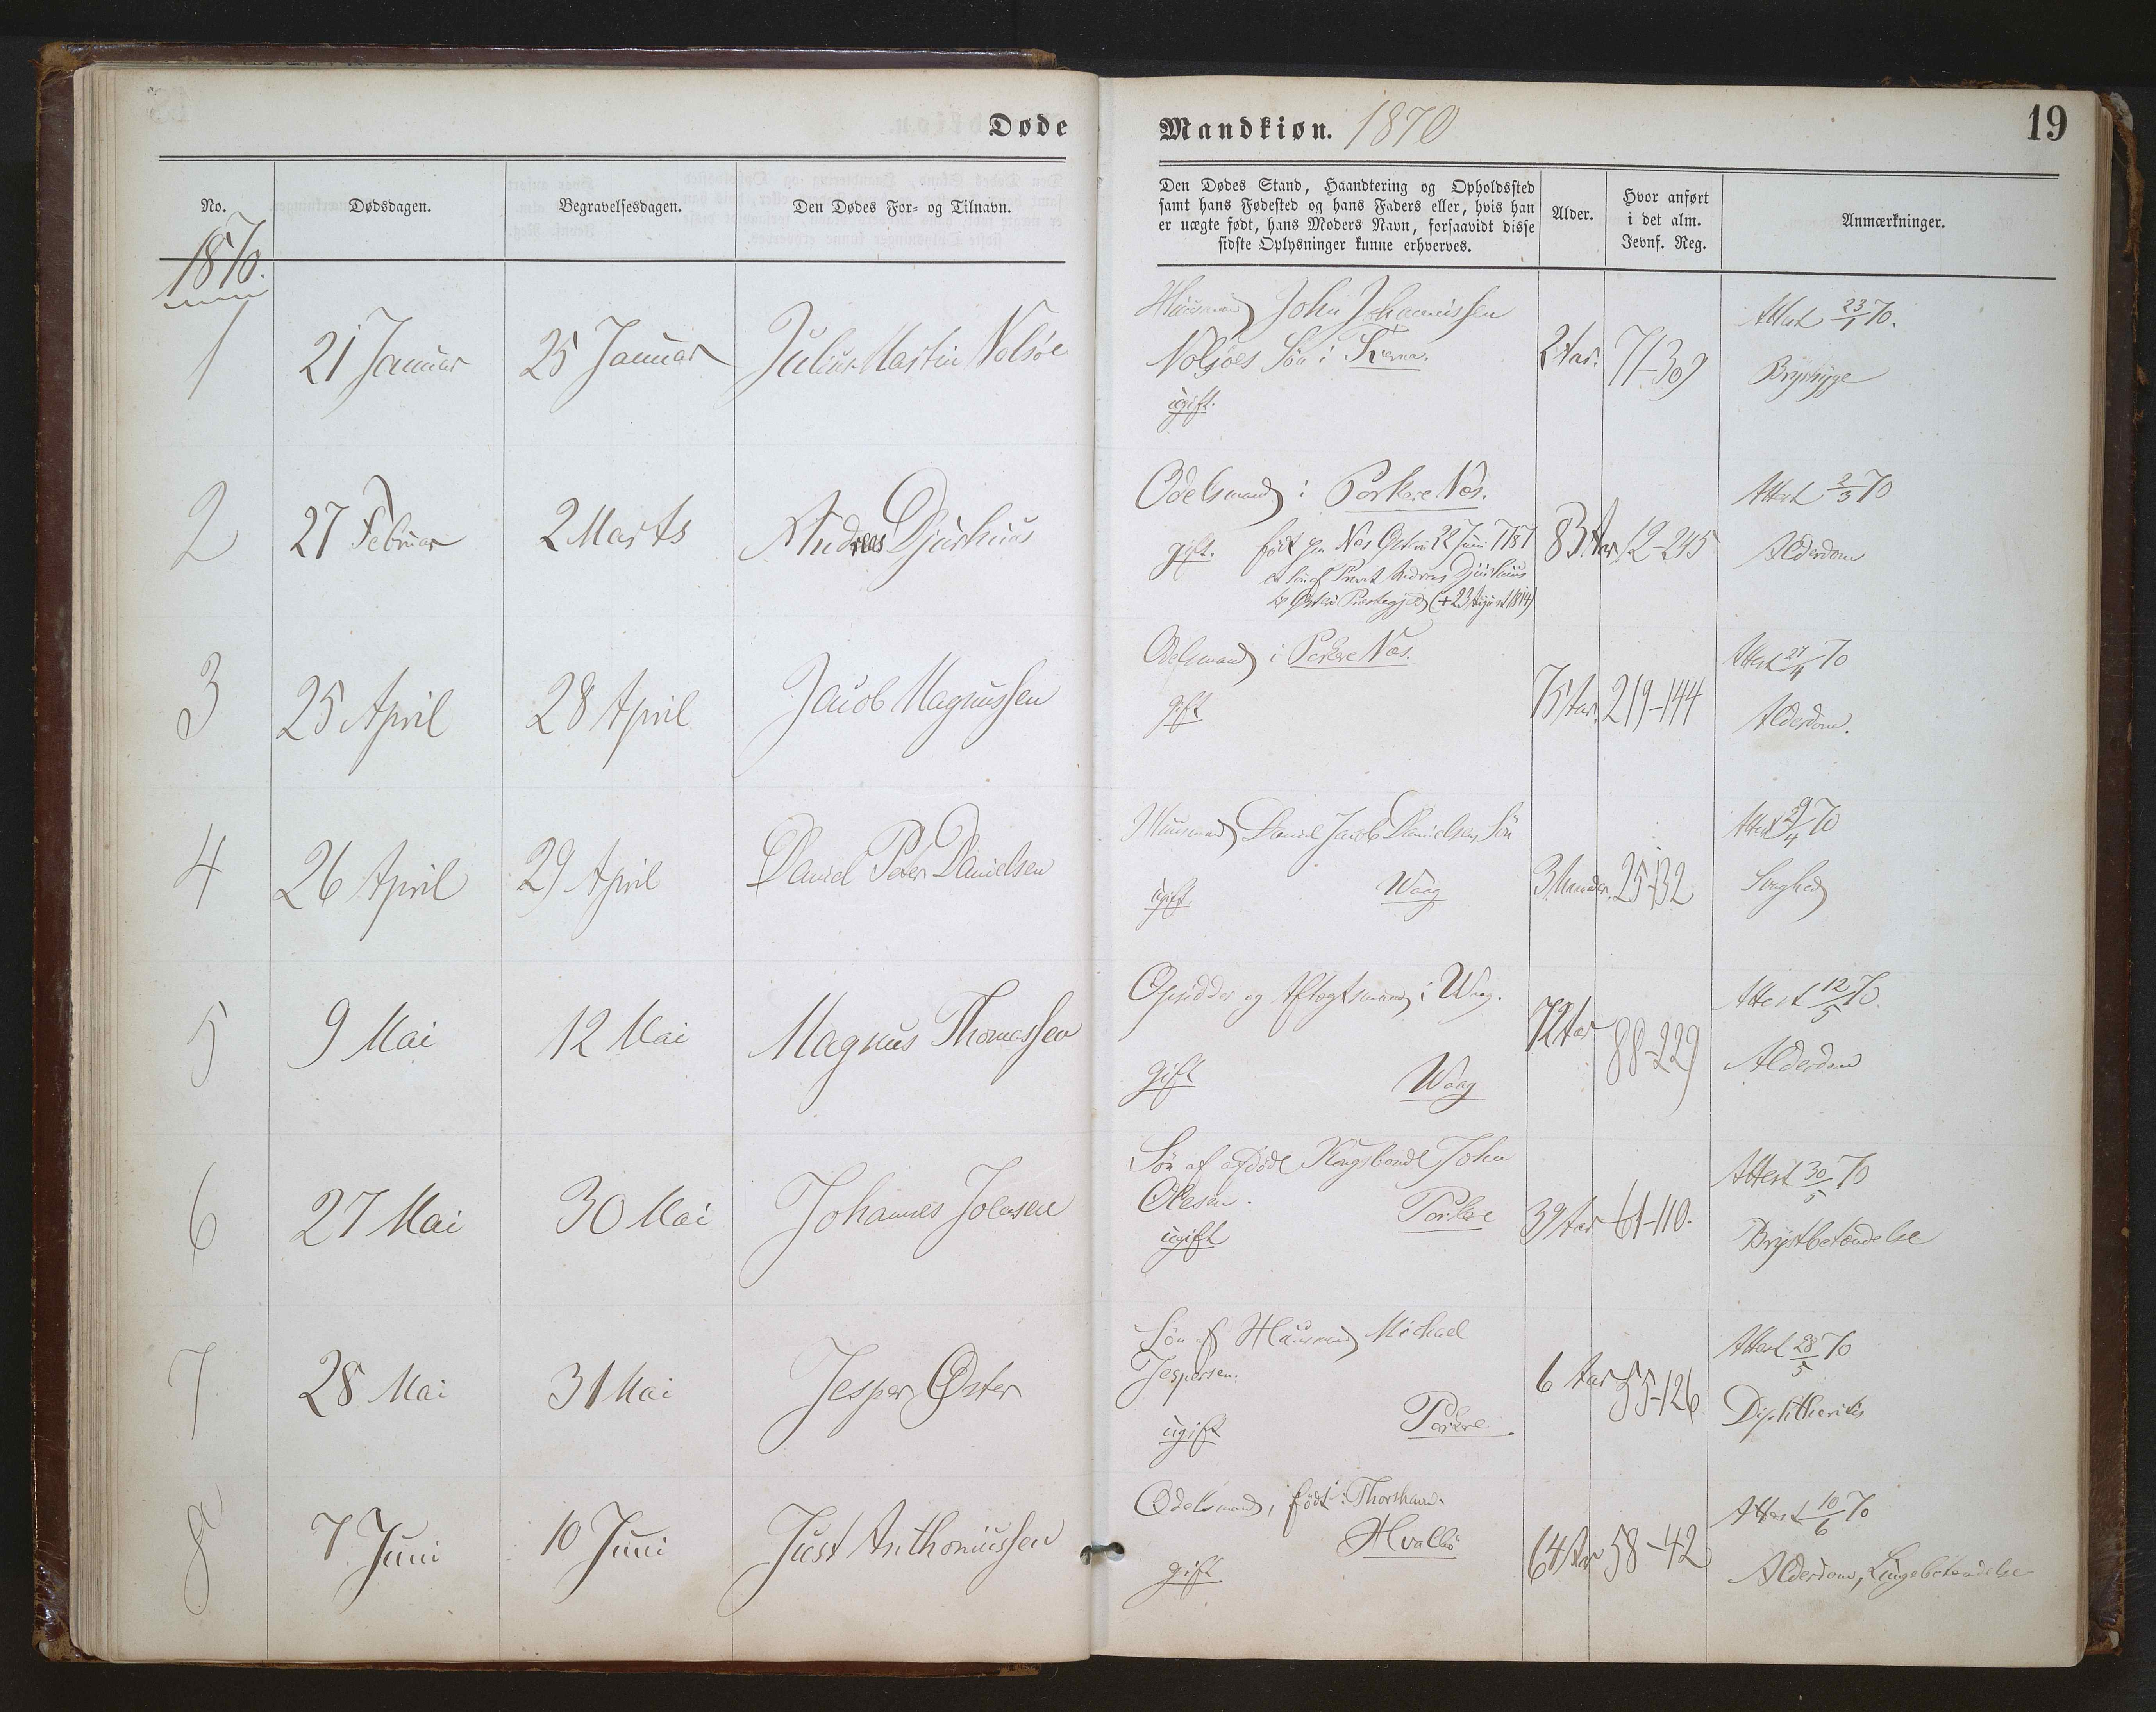 Døde
Mandkiøn. 1870
19
No.
Dødsdagen.
Begravelsesdagen.
Den Dødes For- og Tilnavn.
Den Dødes Stand, Haandtering og Opholdssted
samt hans Fødested og hans Faders eller, hvis han
er uægte født, hans Moders Navn, forsaavidt disse
sidste Oplysninger kunne erhverves.
Alder.
Hvor anført
i det alm.
Jevnf. Reg.
Anmærkninger.
1870.
1
21 Januar
25 Januar
Julius Martin Nolsöe
Huusmand John Johannissen
Nolsöes Sön i
ugift.
2 Aar.
71-309
Attest 23/1 70.
Brystsyge
2
27 Februar
2 Marts
Andreas Djurhuus
Odelsmand i Porkere Næs.
gift. født paa Næs Østerö 22 Juni 1787
er Sön af Præst Andreas Djurhuus
Österö Præstegjeld (+ 23 August 1814)
83 Aar
12-245
Attest 2/3 70
Alderdom
3
25 April
28 April
Jacob Magnussen
Odelsmand i Porkere Næs.
gift
75 Aar.
219-144
Attest 27/4 70
Alderdom.
4
26 April
29 April
Daniel Peter Danielsen
Huusmand Daniel Jacob Danielsens Sön
ugift. Waag
3 Maaneder.
25-32
Attest 29/4 70
Svaghed
5
9 Mai
12 Mai
Magnus Thomassen
Opsidder og Aftægtsmand i Waag.
gift Waag
72 Aar
88-229
Attest 12/5 70.
Alderdom
6
27 Mai
30 Mai
Johannes Joensen
Sön af afdöde Kongsbonde John
Olesen. Porkere
ugift
39 Aar
61-110.
Attest 30/5 70
Brystbetændelse
7
28 Mai
31 Mai
Jesper Øster
Sön af Huusmand Michael
Jespersen.
ugift Porkere
6 Aar
55-126
Attest 28/5 70
Diphtheritis
8
7 Juni
10 Juni
Just Anthoniussen
Odelsmand, född i Thorshavn.
Hvalbö
gift
64 Aar
58-42
Attest 10/6 70
Alderdom, Lungebetændelse